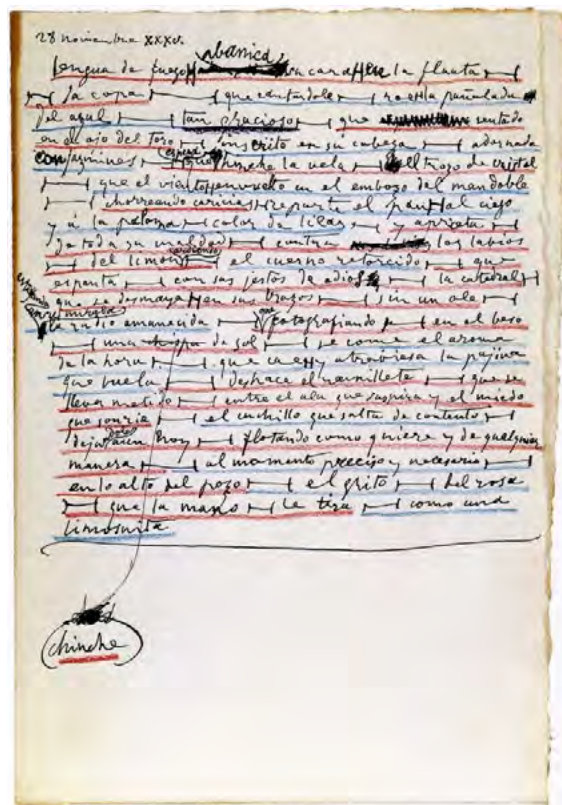 28 noviembre XXXV.
lengua de fuego abanica su cara en la flauta
la copa que cantándole roe la puñalada
del azul tan gracioso que sentado
en el ojo del toro inscrito en su cabeza adornada
con jazmines espera que hinche la vela el trozo de cristal
que el viento envuelto en el embozo del mandoble
chorreando caricias reparte el pan al ciego
y á la paloma color de lilas y aprieta
de toda su maldad contra los labios
del limon ardiendo el cuerno retorcido que
espanta con sus jestos de adios la catedral
que se desmaya en sus brazos sin un ole
estallando en su mirada
la radio amanecida que fotografiando en el beso
una de sol se come el aroma
de la hora que cae y atraviesa la pajina
que vuela deshace el ramillete que se
lleva metido entre el ala que suspira y el miedo
que sonrie el cuchillo que salta de contento
dejandole aun hoy flotando como quiere y de qualquier
manera al momento preciso y necesario
en lo alto del pozo el grito del rosa
que la mano le tira como una
limosnita
chinche